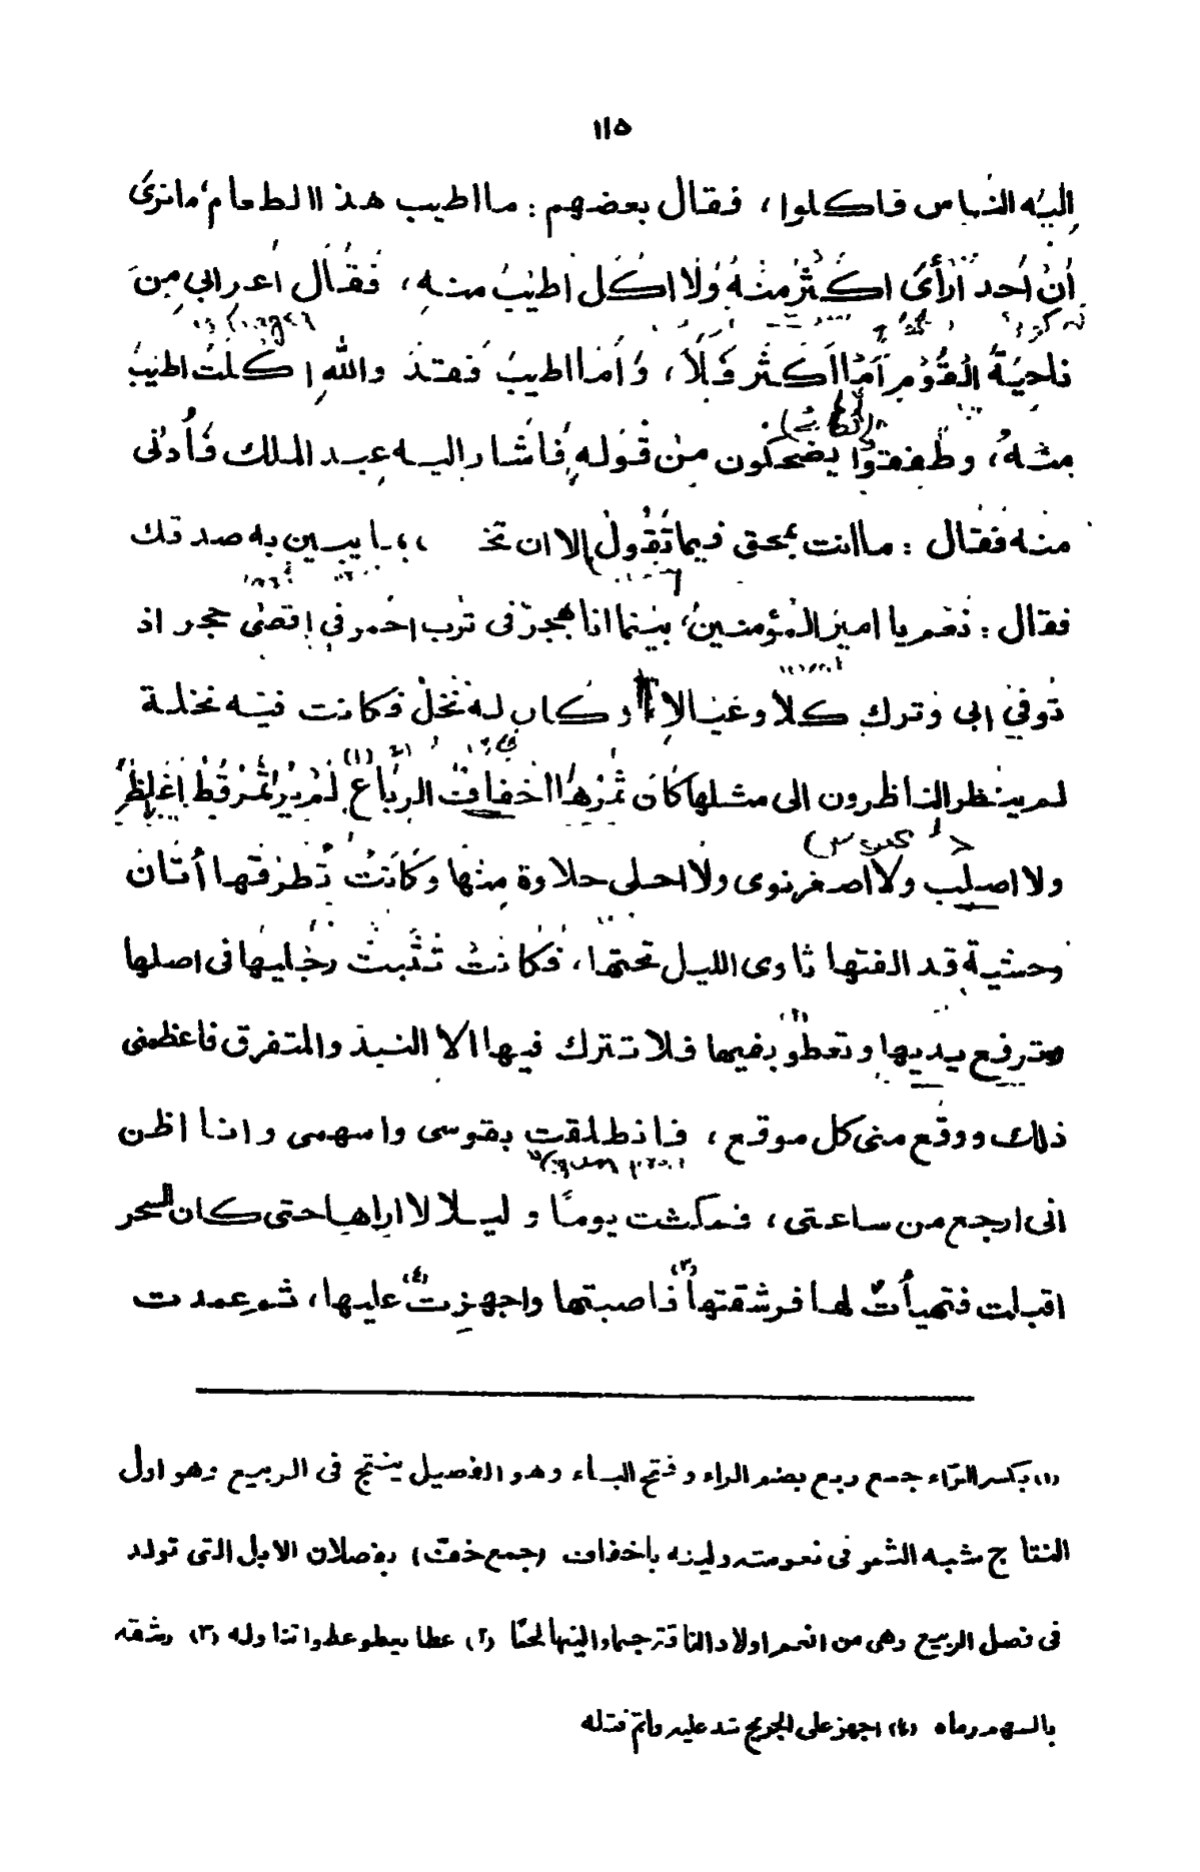 ١١٥
اليه الناس فاكلوا، فقال بعضهم: ما اطيب هذا الطعام، ما نرى
أن أحداً رأى اكثر منه ولا اكل اطيب منه، فقال اعرابي من
ناحية القوم أما اكثر فلا، وأما اطيب فقد والله اكلت اطيب
منه، وطفقوا يضحكون من قوله فأشار اليه عبد الملك فأدنى
منه فقال: ما انت بمحق فيما تقول الا ان تخ بما يبين به صدقك
فقال: نعم يا امير المؤمنين، بينما انا بهجر في ترب احمر في اقصى حجر اذ
توفي ابي وترك كلا وعيالا وكان له نخل فكانت فيه نخلة
لم ينظر الناظرون الى مثلها كأن ثمرها اخفاف الرباع (١) لم ير تمر قط اغلظ
ولا اصلب ولا اصغر نوى ولا احلى حلاوة منها وكانت تطرقها أتان
وحشية قد الفتها تاوى الليل تحتها، فكانت تثبت رجليها فى اصلها
وترفع يديها وتعطو (٢) بفيها فلا تترك فيها الا النبذ والمتفرق فاعظمنى
ذلك ووقع منى كل موقع، فانطلقت بقوسى واسهمى وانا اظن
انى ارجع من ساعتى، فمكثت يوماً و ليلا لا اراها حتى كان السحر
اقبلت فتهيأت لها فرشقتها (٣) فاصبتها واجهزت (٤) عليها، ثم عمدت
(١) بكسر الرّاء جمع ربع بضم الراء وفتح الباء وهو الفصيل ينتج فى الربيع وهو اول
النتاج شبه الثمر فى نعومته ولينه باخفاف (جمع خفّ) بفصلان الابل التى تولد
فى فصل الربيع وهى من انعم اولاد الناقة جسما والينها لحمًا (٢) عطا يعطو عطوا تناوله (٣) رشقه
بالسهم رماه (٤) اجهز على الجريح شد عليه واتمّ قتله